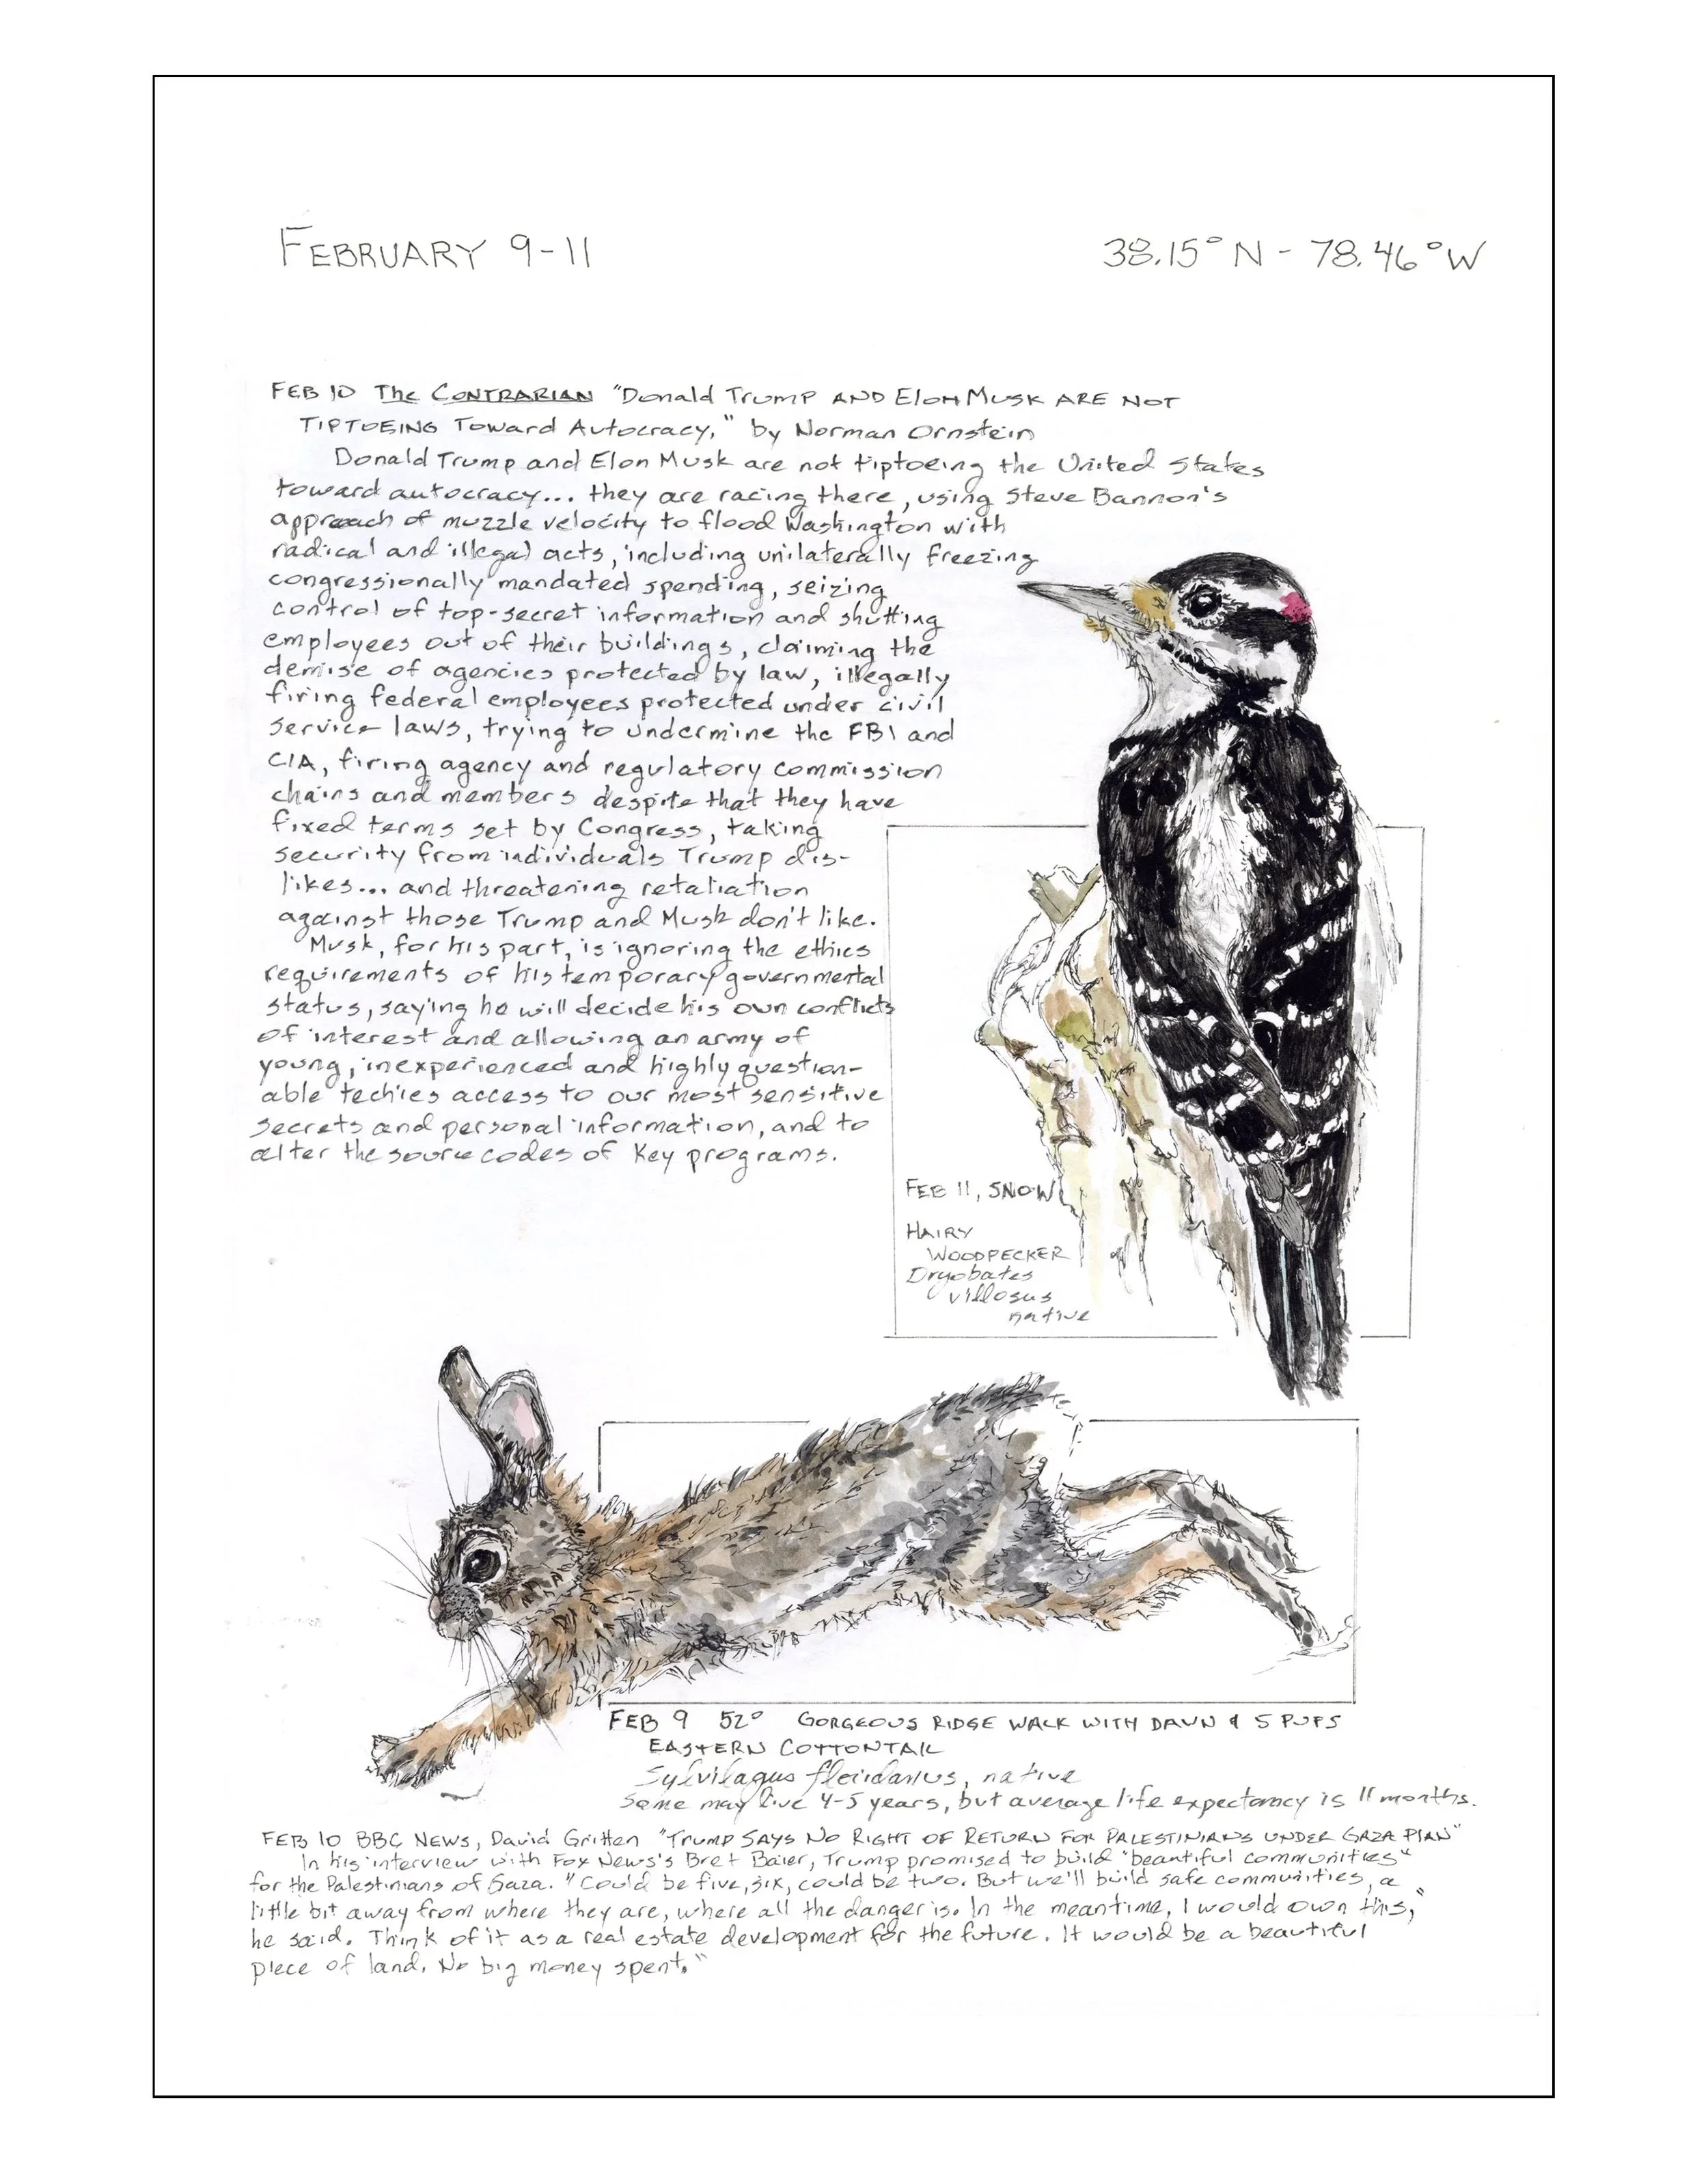 FEBRUARY 9-11
38.15° N - 78.46° W
FEB 10 The CONTRARIAN "Donald Trump AND Elon MUSK ARE NOT
TIPTOEING Toward Autocracy," by Norman Ornstein
Donald Trump and Elon Musk are not tiptoeing the United States
toward autocracy... they are racing there, using Steve Bannon's
approach of muzzle velocity to flood Washington with
radical and illegal acts, including unilaterally freezing
congressionally mandated spending, seizing
control of top-secret information and shutting
employees out of their buildings, claiming the
demise of agencies protected by law, illegally
firing federal employees protected under civil
service laws, trying to undermine the FBI and
CIA, firing agency and regulatory commission
chairs and members despite that they have
fixed terms set by Congress, taking
security from individuals Trump dis-
likes... and threatening retaliation
against those Trump and Musk don't like.
Musk, for his part, is ignoring the ethics
requirements of his temporary governmental
status, saying he will decide his own conflicts
of interest and allowing an army of
young, inexperienced and highly question-
able techies access to our most sensitive
secrets and personal information, and to
alter the source codes of key programs.
FEB 11, SNOW
HAIRY
WOODPECKER
Dryobates
villosus
native
FEB 9 52° GORGEOUS RIDGE WALK WITH DAWN & 5 PUPS
EASTERN COTTONTAIL
Sylvilagus floridanus, native
Some may live 4-5 years, but average life expectancy is 11 months.
FEB 10 BBC NEWS, David Gritten "TRUMP SAYS NO RIGHT OF RETURN FOR PALESTINIANS UNDER GAZA PLAN"
In his interview with Fox News's Bret Baier, Trump promised to build "beautiful communities"
for the Palestinians of Gaza. "Could be five, six, could be two. But we'll build safe communities, a
little bit away from where they are, where all the danger is. In the meantime, I would own this,"
he said. Think of it as a real estate development for the future. It would be a beautiful
piece of land. No big money spent."